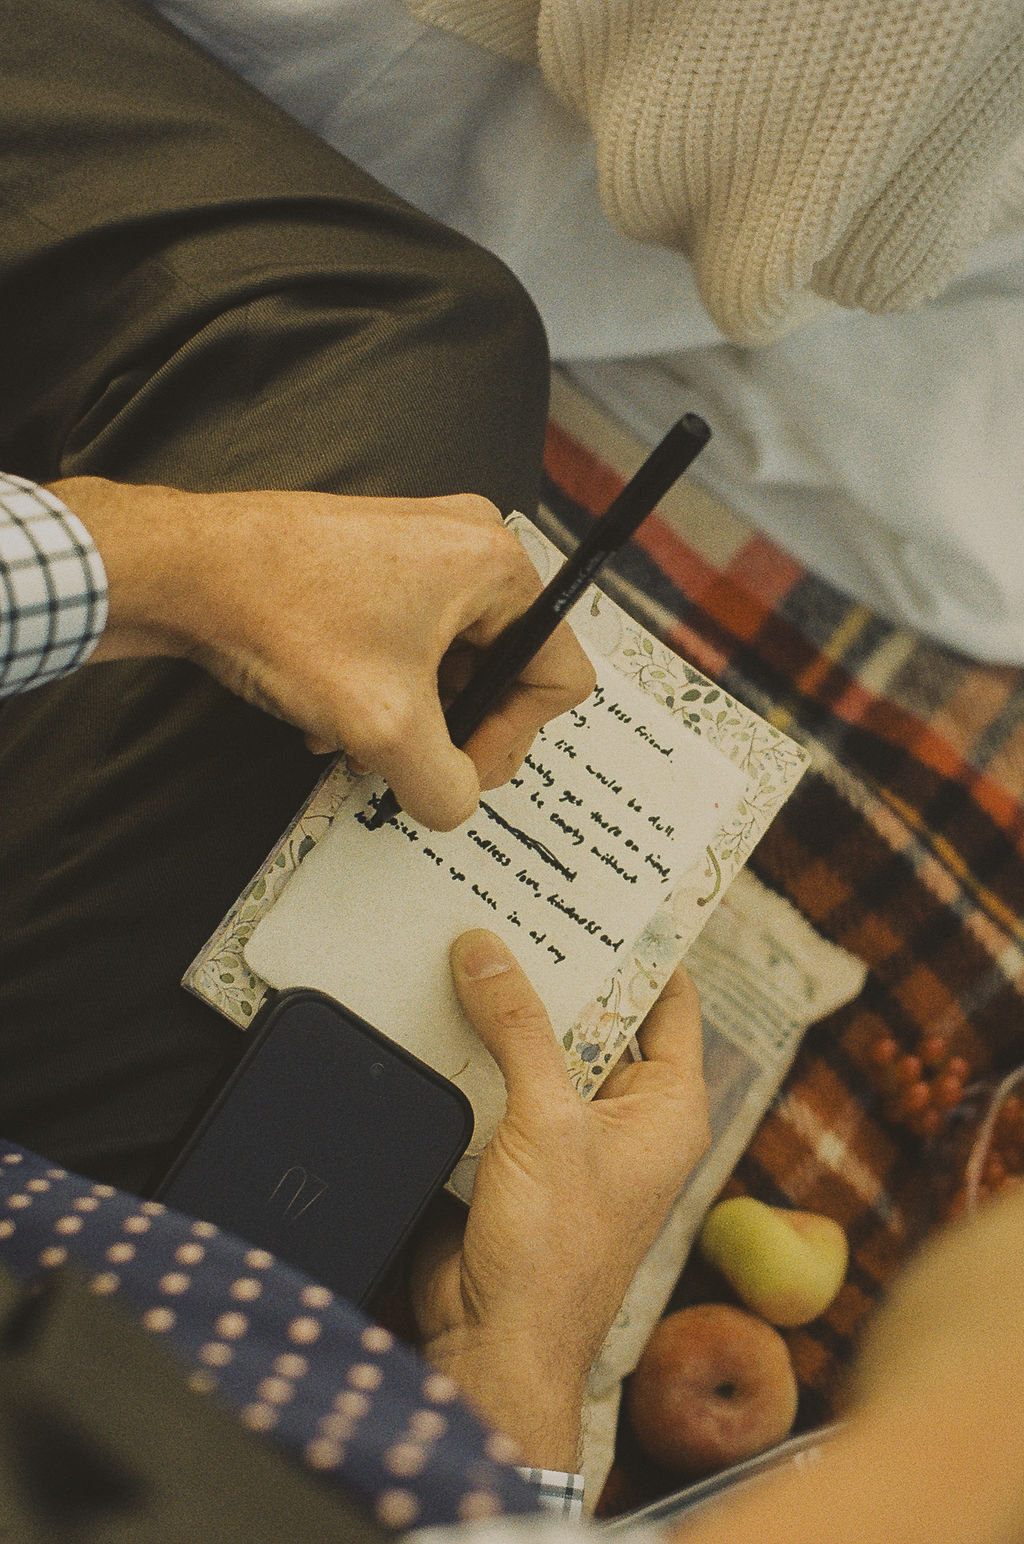 My best friend.
ng.
life would be dull.
bably get there on time,
d be empty without
endless love, kindness and
pick me up when im at my